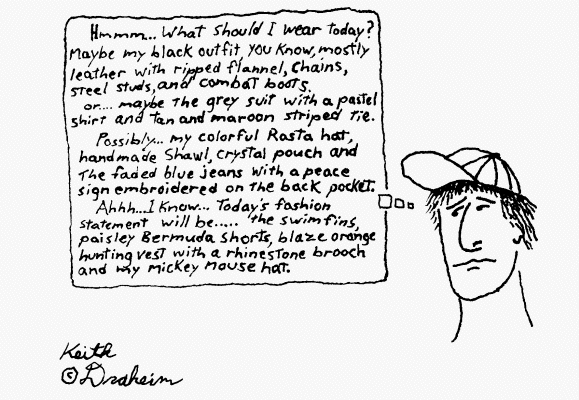 Hmmm... What should I wear today?
Maybe my black outfit, you know, mostly
leather with ripped flannel, chains,
steel studs, and combat boots.
or.... maybe the grey suit with a pastel
shirt and tan and maroon striped tie.
Possibly... my colorful Rasta hat,
handmade shawl, crystal pouch and
the faded blue jeans with a peace
sign embroidered on the back pocket.
Ahhh...I know... Today's fashion
statement will be..... the swimfins,
paisley Bermuda shorts, blaze orange
hunting vest with a rhinestone brooch
and my Mickey Mouse hat.
Keith
© Draheim